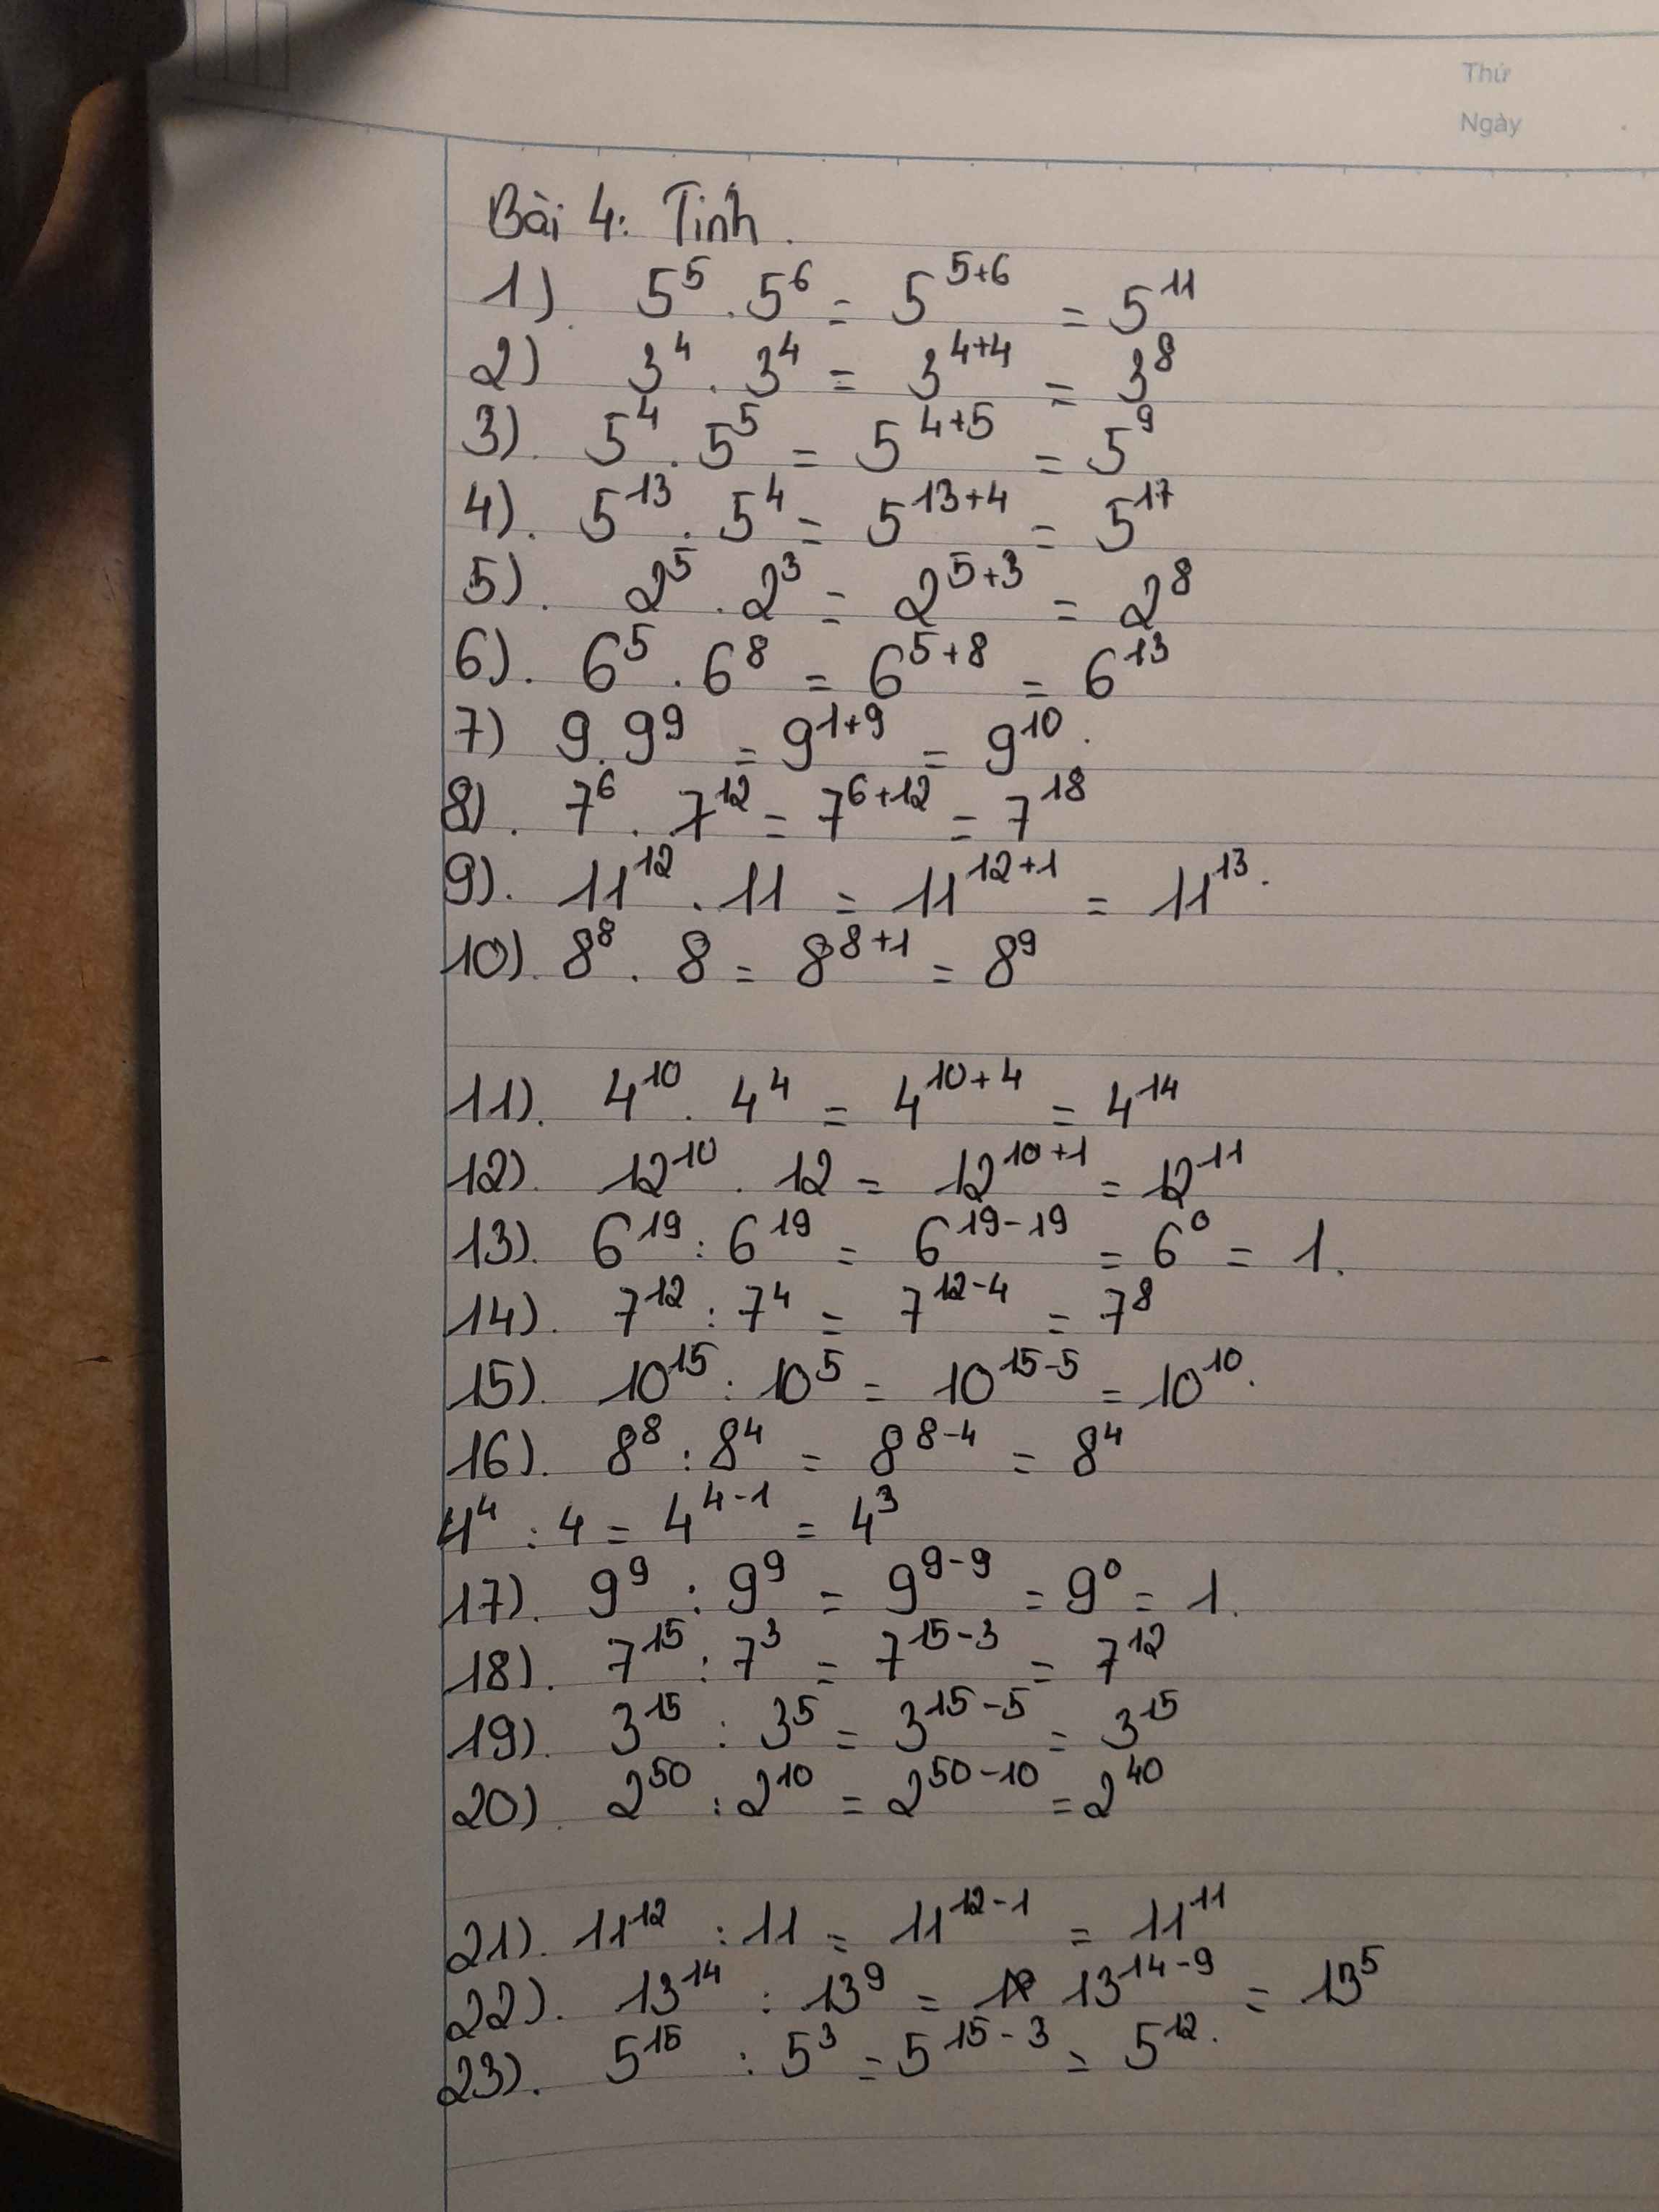 Thứ
Ngày
Bài 4: Tính.
1). 5⁵ . 5⁶ = 5⁵⁺⁶ = 5¹¹
2) 3⁴ . 3⁴ = 3⁴⁺⁴ = 3⁸
3). 5⁴ . 5⁵ = 5⁴⁺⁵ = 5⁹
4). 5¹³ . 5⁴ = 5¹³⁺⁴ = 5¹⁷
5). 2⁵ . 2³ = 2⁵⁺³ = 2⁸
6). 6⁵ . 6⁸ = 6⁵⁺⁸ = 6¹³
7) 9 . 9⁹ = 9¹⁺⁹ = 9¹⁰.
8). 7⁶ . 7¹² = 7⁶⁺¹² = 7¹⁸
9). 11¹² . 11 = 11¹²⁺¹ = 11¹³.
10). 8⁸ . 8 = 8⁸⁺¹ = 8⁹
11). 4¹⁰ . 4⁴ = 4¹⁰⁺⁴ = 4¹⁴
12). 12¹⁰ . 12 = 12¹⁰⁺¹ = 12¹¹
13). 6¹⁹ : 6¹⁹ = 6¹⁹⁻¹⁹ = 6⁰ = 1.
14). 7¹² : 7⁴ = 7¹²⁻⁴ = 7⁸
15). 10¹⁵ : 10⁵ = 10¹⁵⁻⁵ = 10¹⁰.
16). 8⁸ : 8⁴ = 8⁸⁻⁴ = 8⁴
4⁴ : 4 = 4⁴⁻¹ = 4³
17). 9⁹ : 9⁹ = 9⁹⁻⁹ = 9⁰ = 1.
18). 7¹⁵ : 7³ = 7¹⁵⁻³ = 7¹²
19). 3¹⁵ : 3⁵ = 3¹⁵⁻⁵ = 3¹⁵
20). 2⁵⁰ : 2¹⁰ = 2⁵⁰⁻¹⁰ = 2⁴⁰
21). 11¹² : 11 = 11¹²⁻¹ = 11¹¹
22). 13¹⁴ : 13⁹ = 13¹⁴⁻⁹ = 13⁵
23). 5¹⁵ : 5³ = 5¹⁵⁻³ = 5¹².